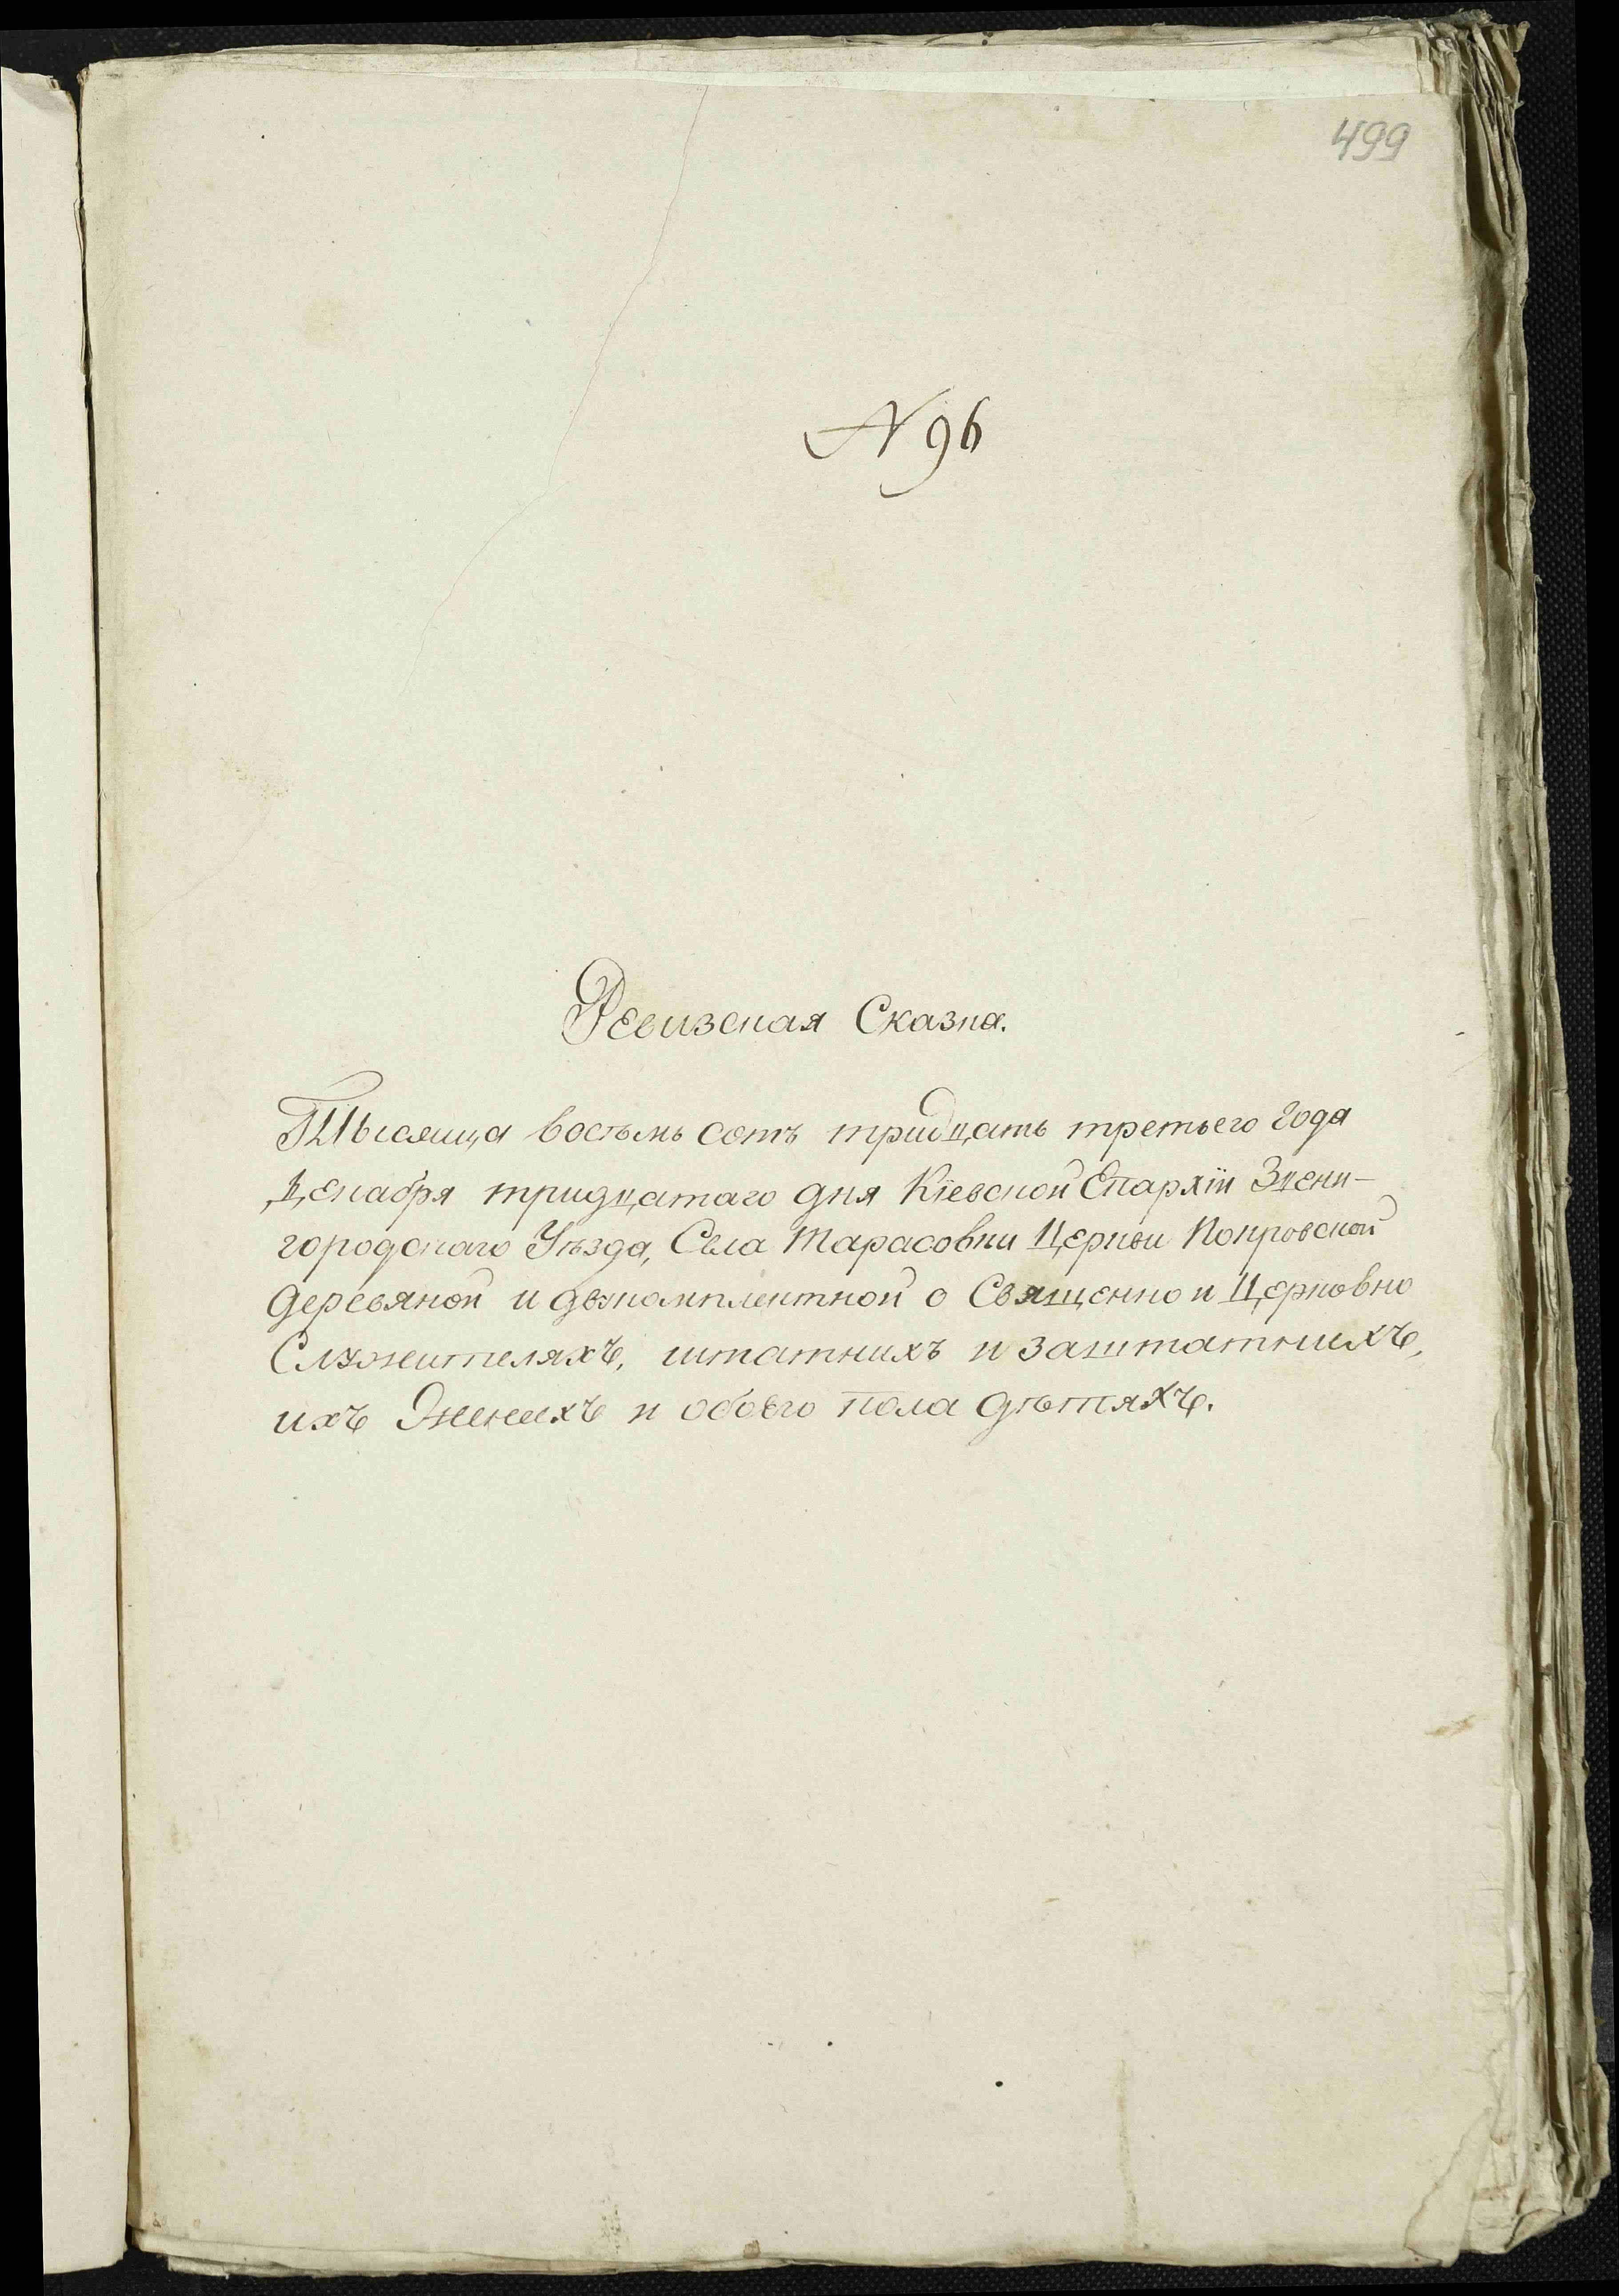 499
N 96
Ревизская Сказка.
Тысяща восъмь сотъ тридцать третьего года
Декабря тридцатаго дня Кіевской Епархіи Звени-
городскаго Уѣзда, Села Тарасовки Церкви Покровской
деревяной и двукомплектной о Священно и Церковно
Служителяхъ, штатнихъ и заштатнихъ,
ихъ Женихъ и обоего пола дѣтяхъ.